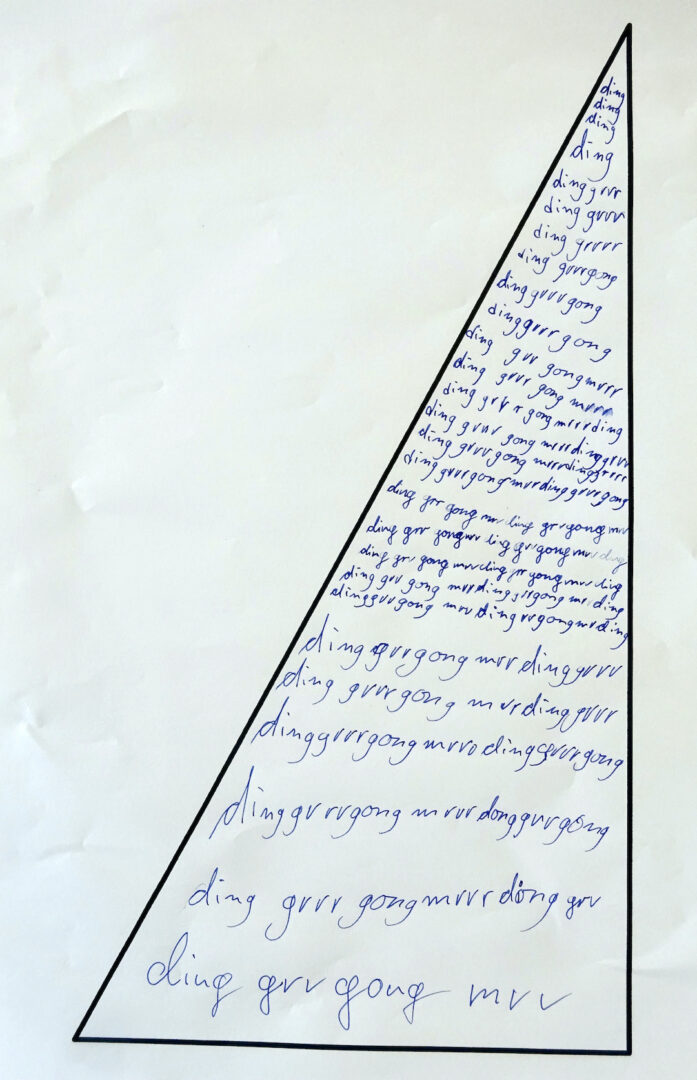 ding
ding
ding
ding
ding grrr
ding grrrr
ding grrrr
ding grrrgong
dinggrrrgong
dinggrrr gong
ding grr gongmrrr
ding grrr gong mrrrr
ding grrr gong mrrrding
ding grrr gong mrrrdinggrrr
ding grrr gong mrrrdinggrrrr
ding grrrgong mrrdinggrrrgong
ding grr gong mr ding grrgong mrr
ding grr gongmrr ding grrgong mrr ding
ding grr gong mrrding grrgong mrr ding
ding grr gong mrrding grrgong mr ding
dinggrrgong mrr dingrrgongmrding
ding grrgong mrr dinggrrr
ding grrrgong mrrdinggrrr
dinggrrrgong mrrr dinggrrrgong
dinggrrrrgong mrrr donggrrrgong
ding grrr gongmrrr döng grr
ding grr gong mrr